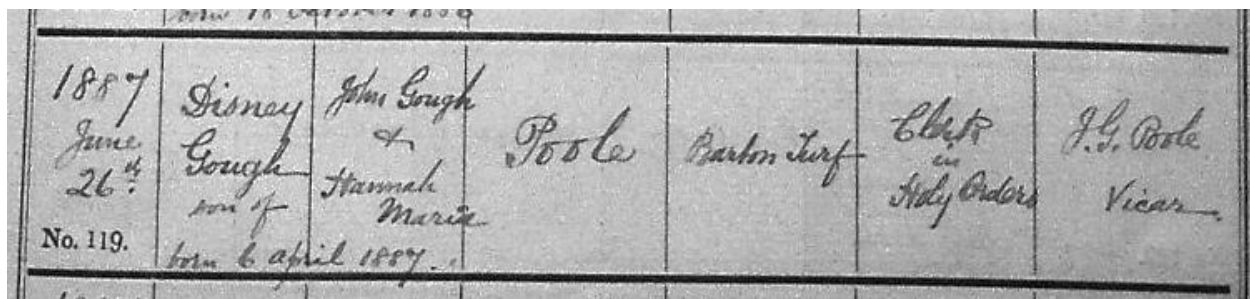 born 18 October 1886
1887
June
26th
No. 119.
Disney
Gough
son of
born 6 April 1887.
John Gough
&
Hannah
Maria
Poole
Barton Turf
Clerk
in
Holy Orders
J.G. Poole
Vicar